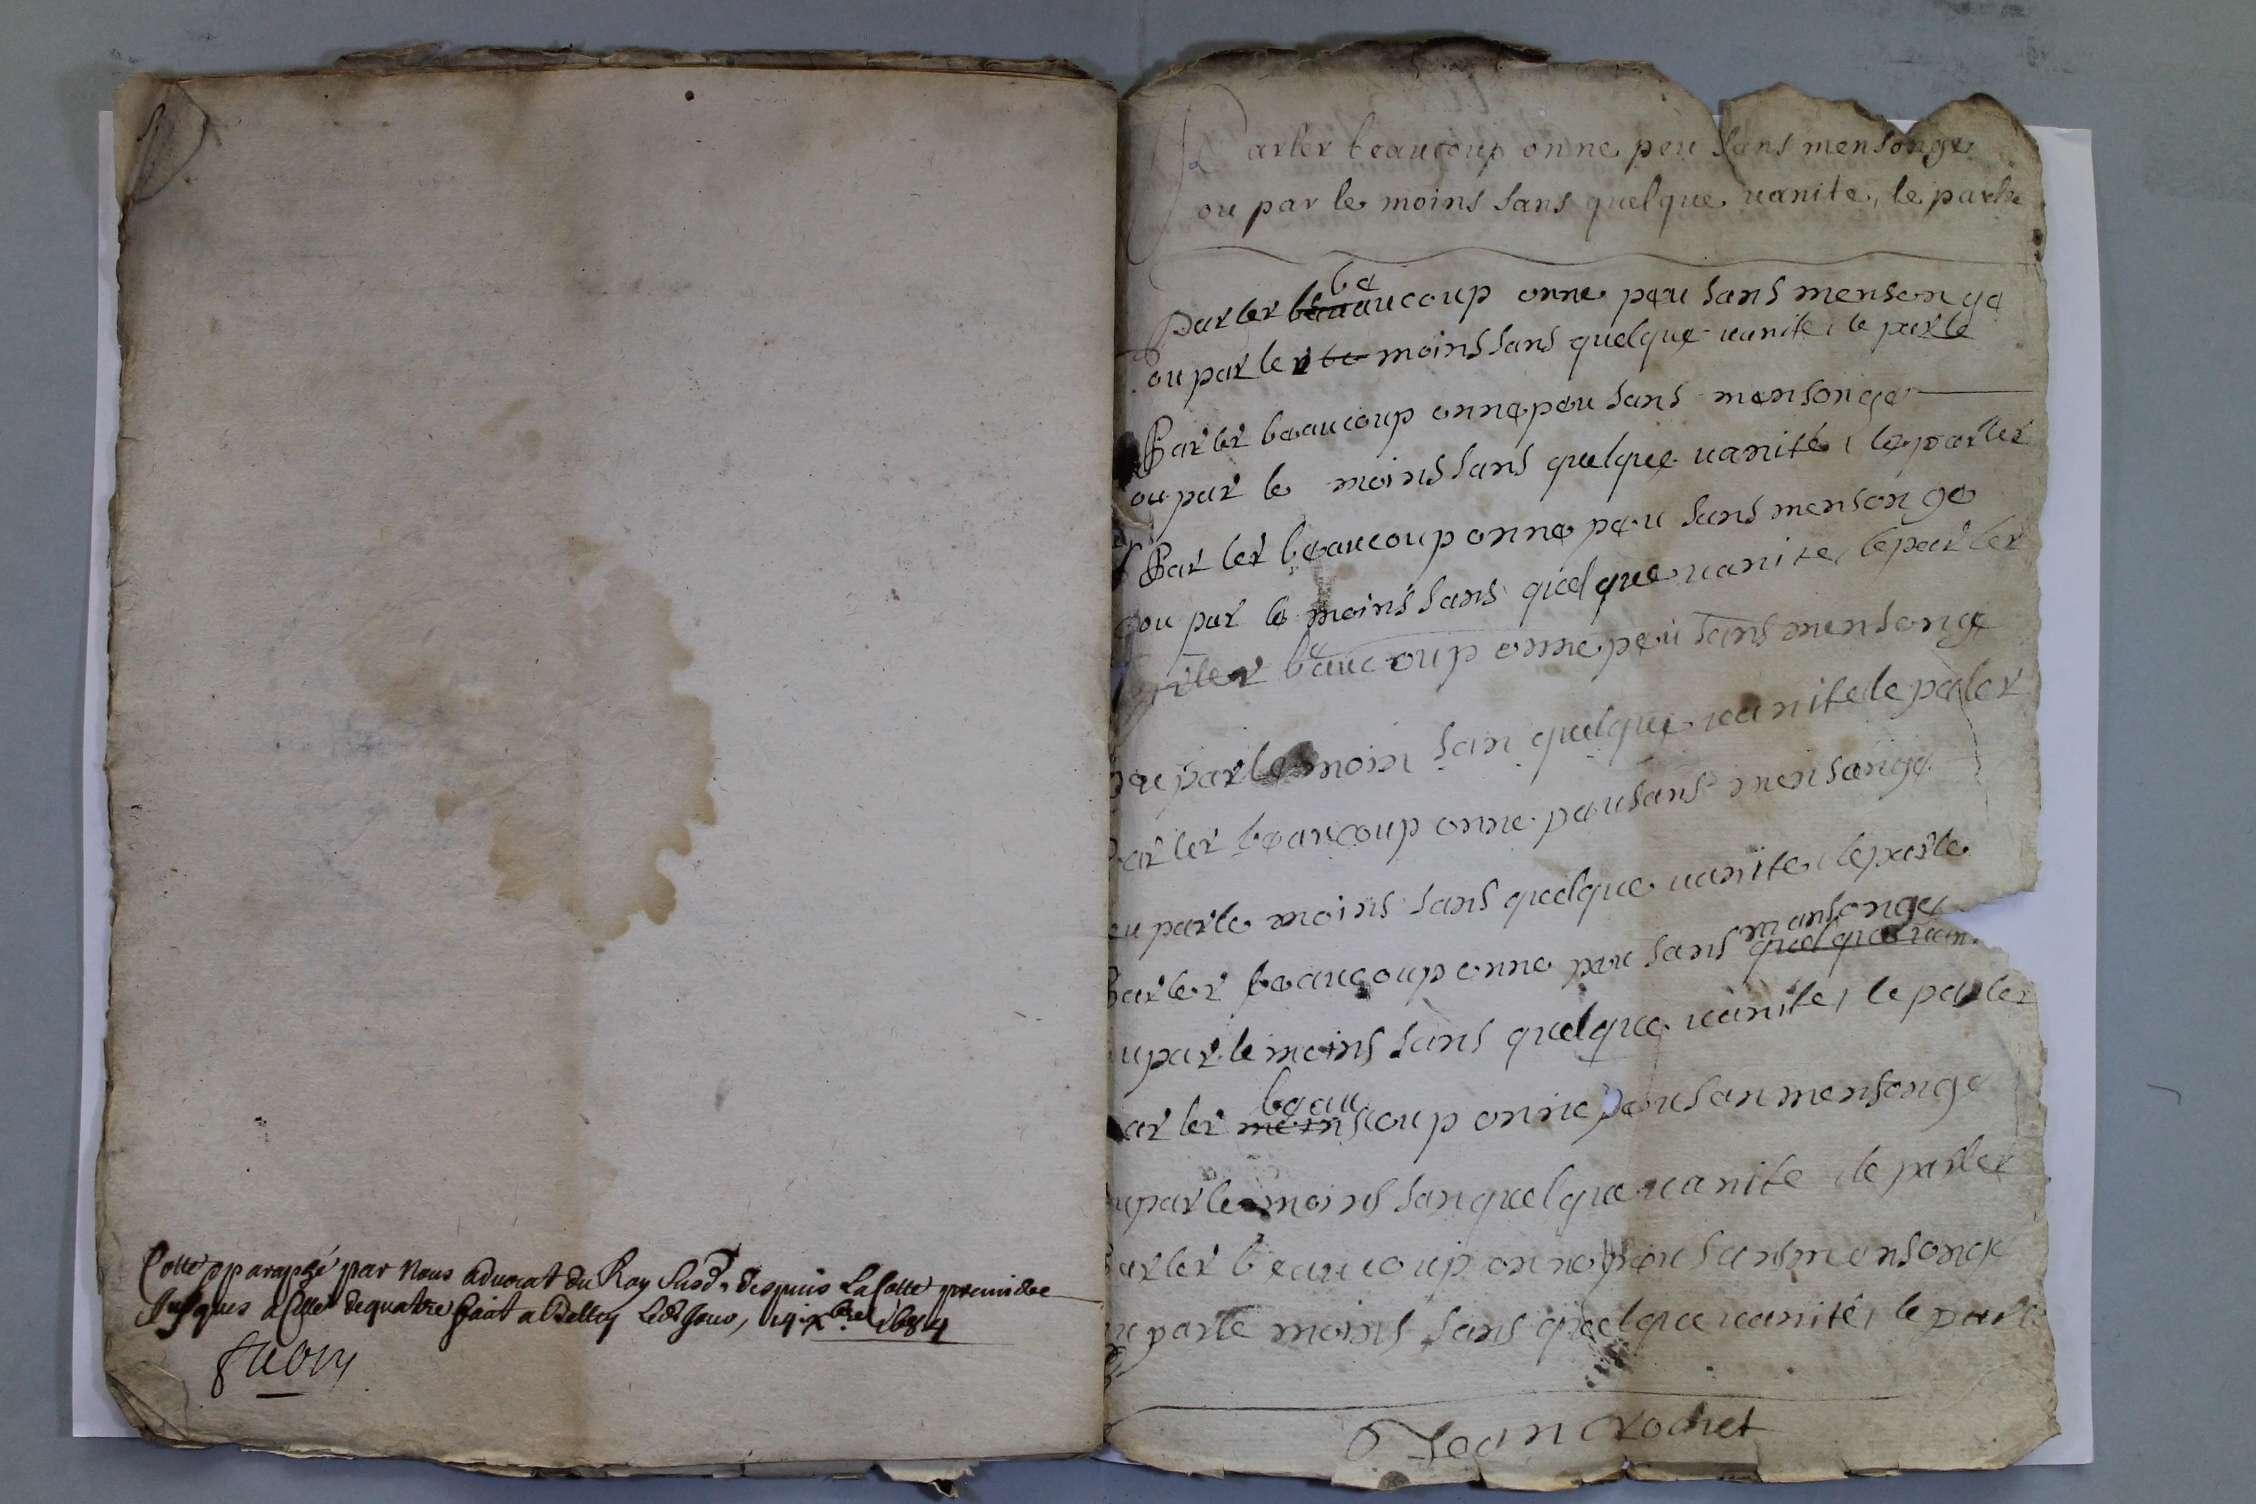 Cotté & paraphé par Nous advocat du Roy Susd. despuis La Cotte premiere
Jusques a Celle de quatre fait a Belley Led. Jour, 19 xbre 1684
Parler beaucoup on ne peu sans mensonge
ou par le moins sans quelque uanite, le parler
Parler beaucoup onne peu sans mensonge
ou par le moins sans quelque uanite, le parle
Parler beaucoup onne peu sans mensonge
ou par le moins sans quelque uanité, le parler
Parler beaucoup onne peu sans mensonge
ou par le moins sans quelque uanite, le parler
Parler beaucoup onne peu sans mensonge
ou par le moin san quelque uanite le paler
Parler beaucoup onne peu sans mensonge
ou parle moins sans quelque uanite, le parle
Parler beaucoup onne peu sans mansonge
ou par le moins sans quelque uanite, le parler
arler beaucoup onne peu san mensonge
u par le moins san quelque uanite le parler
Parler beaucoup onne peu sans mensonge
ou parle moins sans quelque uanité, le parle
Jean Crochet